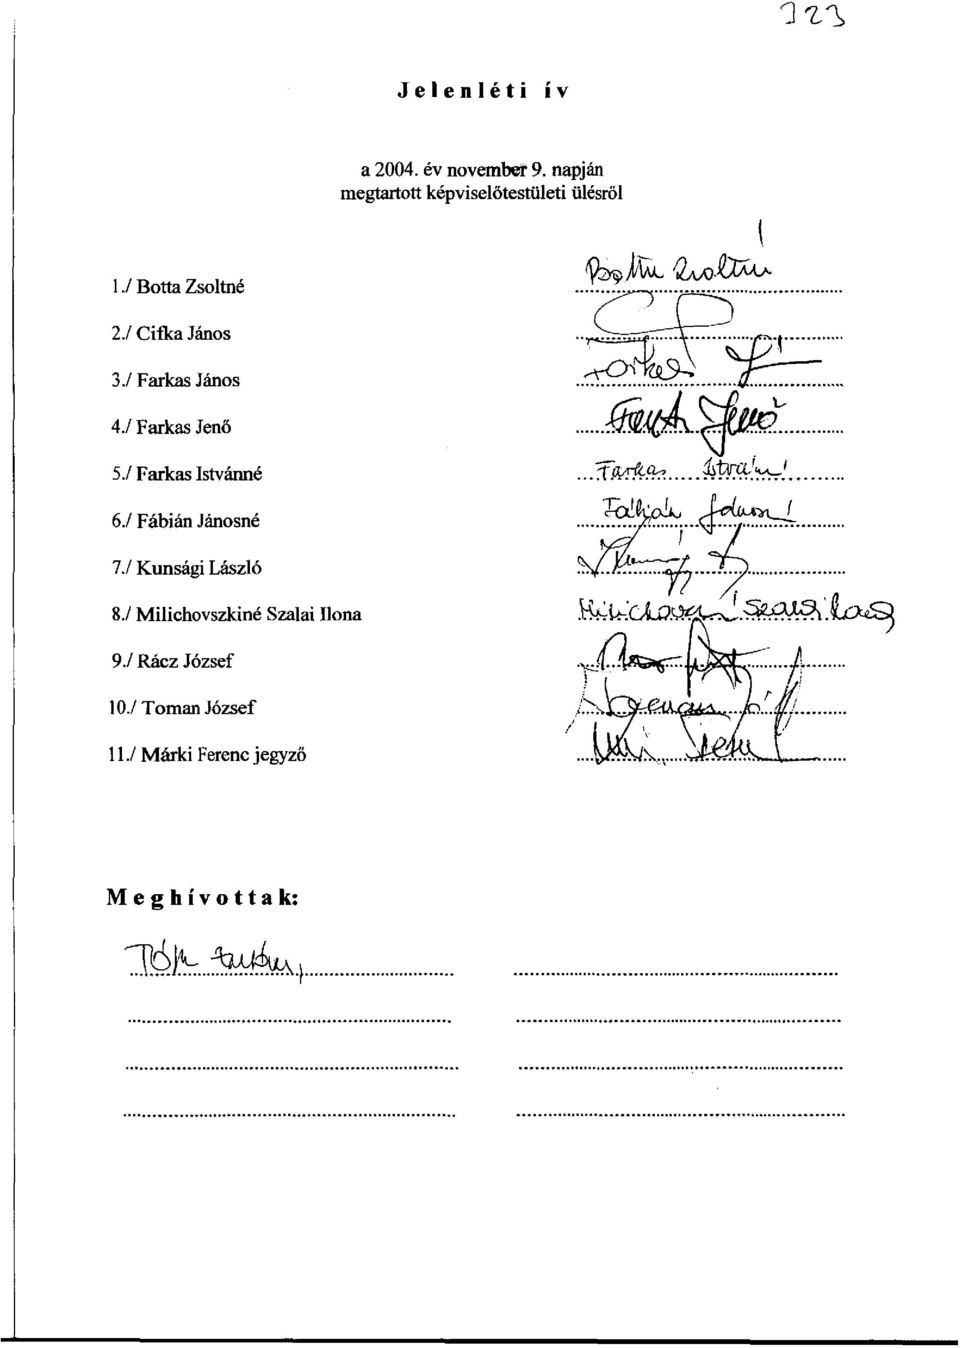 323
Jelenléti ív
a 2004. év november 9. napján
megtartott képviselőtestületi ülésről
1./ Botta Zsoltné Botta Zsoltné
2./ Cifka János
3./ Farkas János Farkas J
4./ Farkas Jenő Farkas Jenő
5./ Farkas Istvánné Farkas Istvánné
6./ Fábián Jánosné Fábián Jánosné
7./ Kunsági László
8./ Milichovszkiné Szalai Ilona Milichovszkiné Szalai Ilona
9./ Rácz József
10./ Toman József
11./ Márki Ferenc jegyző
Meghívottak:
Tóth